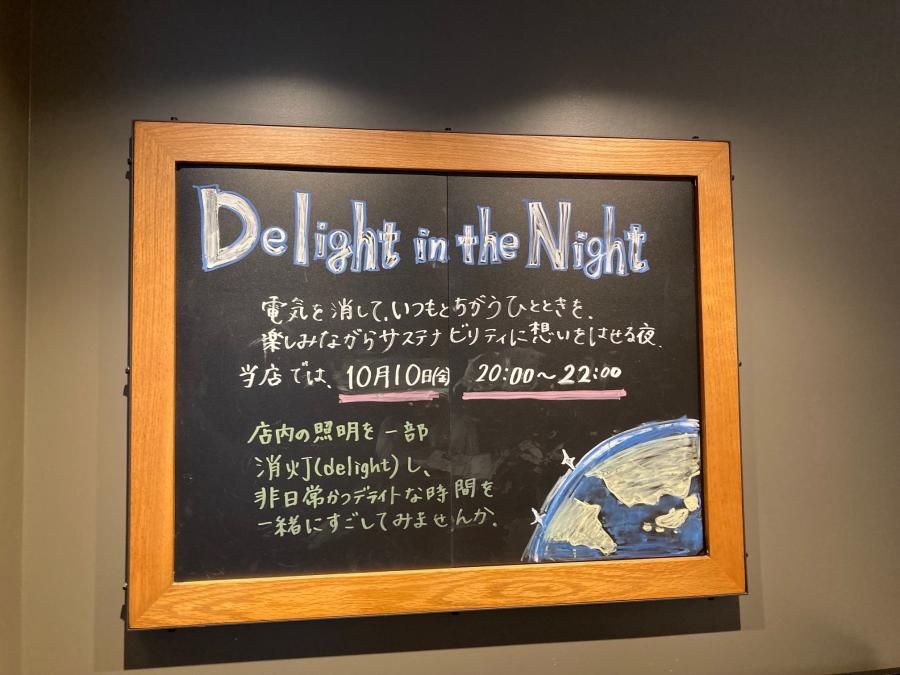 Delight in the Night
電気を消して、いつもとちがうひとときを、
楽しみながらサステナビリティに想いをはせる夜、
当店では、10月10日(金) 20:00〜22:00
店内の照明を一部
消灯(delight)し、
非日常かつデライトな時間を
一緒にすごしてみませんか。